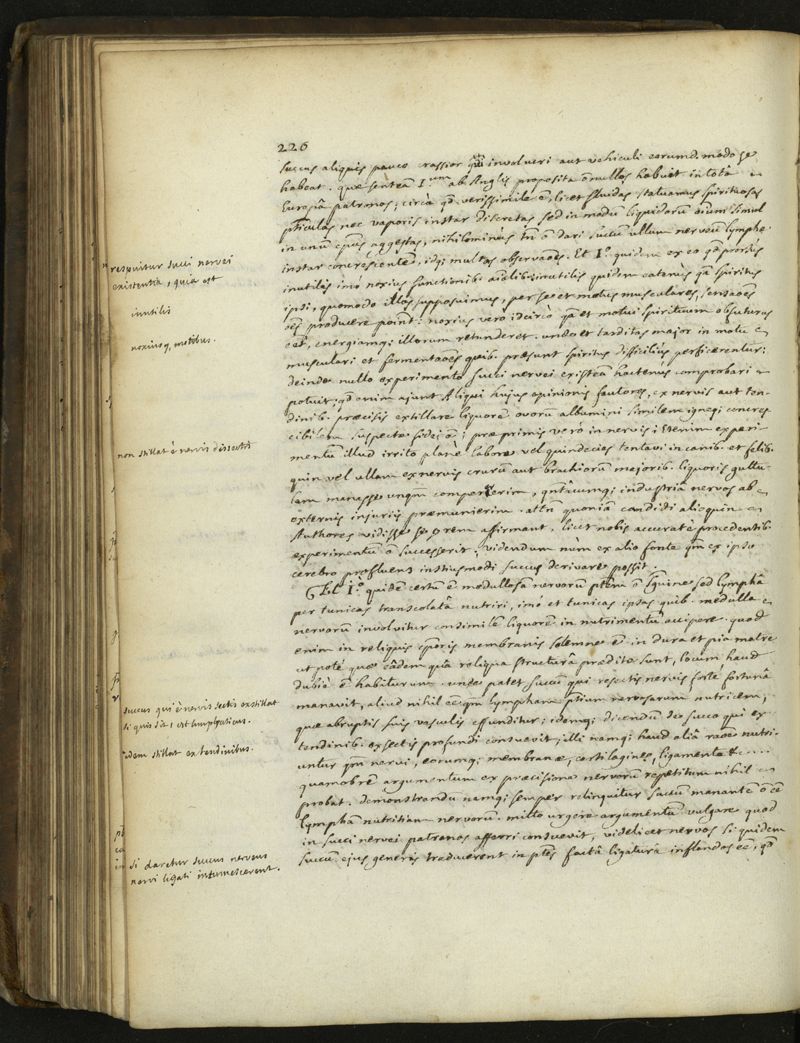 226
succus aliquis pauco crassior qui involucri aut vehiculi eorumd. modo se
habeat. quæ sententã 1.um ab Anglis proposita õmultos habuit in tota
Europã patronos; circà qd verissimile ẽ, licet fluidas statuamus spirituosas
pticulas nec vaporis instar discretas sed in modũ liquidorũ oium simul
in unũ cpus aggestas, nihilominùs tñ õ dari succũ ullum nerveũ lymphæ
instar concrescentẽ, idq; multas observaões. Et 1.o quidem ex eo qd prorsùs
inutilis imò noxius functionib. aialib. inutilis quidem eatenus qã spiritus
ipsi, quomodo illos supposuimus, per se et motus musculares, sensaões
oẽs producere point: noxius vero idcircò qã et motui spirituum obfuturus
eẽt, energiamq; illorum retunderet. unde et tarditas major in motu
musculari et fermentaões quib. præsunt spiritus difficiliùs perficerentur:
deinde nullo experimento succi nervei existẽã hactenus comprobari
potuit; qd enim ajunt aliqui hujus opinionis fautores, ex nervis aut ten-
dinib. præcisis extillare liquorẽ ovorũ albumini similem igneq; concres
cibilem suspectæ fidei ẽ; præ primis verò in nervis; Etenim experi-
mentũ illud irrito planè labore vel quindecies tentavi in canib. et felib.
quin vel ullam ex nervis crurũ aut brachiorũ majorib. liquoris guttu-
lam manasse unqm compererim, qntãcumq; industriã nervos ab
externis injuriis præmunierim. attñ quoniã candidi alioquin
Authores vidisse se rem affirmant, licet nobis accuratè procedentib.
experimentũ õ successerit; videndum nùm ex alio fonte qm ex ipso
cerebro profluens istiusmodi succus derivare possit.
Et 1.o quidẽ certũ ẽ medullosã nervorũ ptẽm õ sguine sed lymphâ
per tunicas transcolatâ nutriri, imò et tunicas ipsas quib. medulla
nervorũ involvitur consimilẽ liquorẽ in nutrimentũ accipere. quod
enim in reliquis cporis membranis solemne ẽ in dura et pia matre
ut potè quæ eâdem qua reliqua structurâ præditæ sunt, locum haud
dubiè ẽ habiturum. unde patet succũ qui resectis nervis fortè fortunâ
manavit, aliud nihil eẽ qm lympham ptium nervosarum nutricem,
quæ abruptis suis vasculis effunditur; idemq; dicendũ de succo qui ex
tendinib. exsectis profundi consuevit; illi namq; haud aliâ raõe nutri-
untur qm nervi, eorumq; membranæ, cartilagines, ligamenta &c....
quamobrẽ argumentum ex præcisione nervorũ repetitum nihil
probat. demonstrandũ namq; semper relinquitur succũ manantẽ õ eẽ
lymphã nutritiam nervorũ. mitto urgere argumentũ vulgare quod
in succi nervei patronos afferri consuevit, videlicet nervos si quidem
succũ ejus generis traducerent in ptẽs factâ ligaturâ inflandos eẽ, qd
respuitur succi nervei
existentia, quia est
inutilis
noxiusq, motibus.
non stillat è nervis dissectis
succus qui è nervis sectis exstillat
si quis sit, est lymphaticus.
idem stillat ex tendinibus.
si daretur succus nerveus
nervi ligati intumescerent.